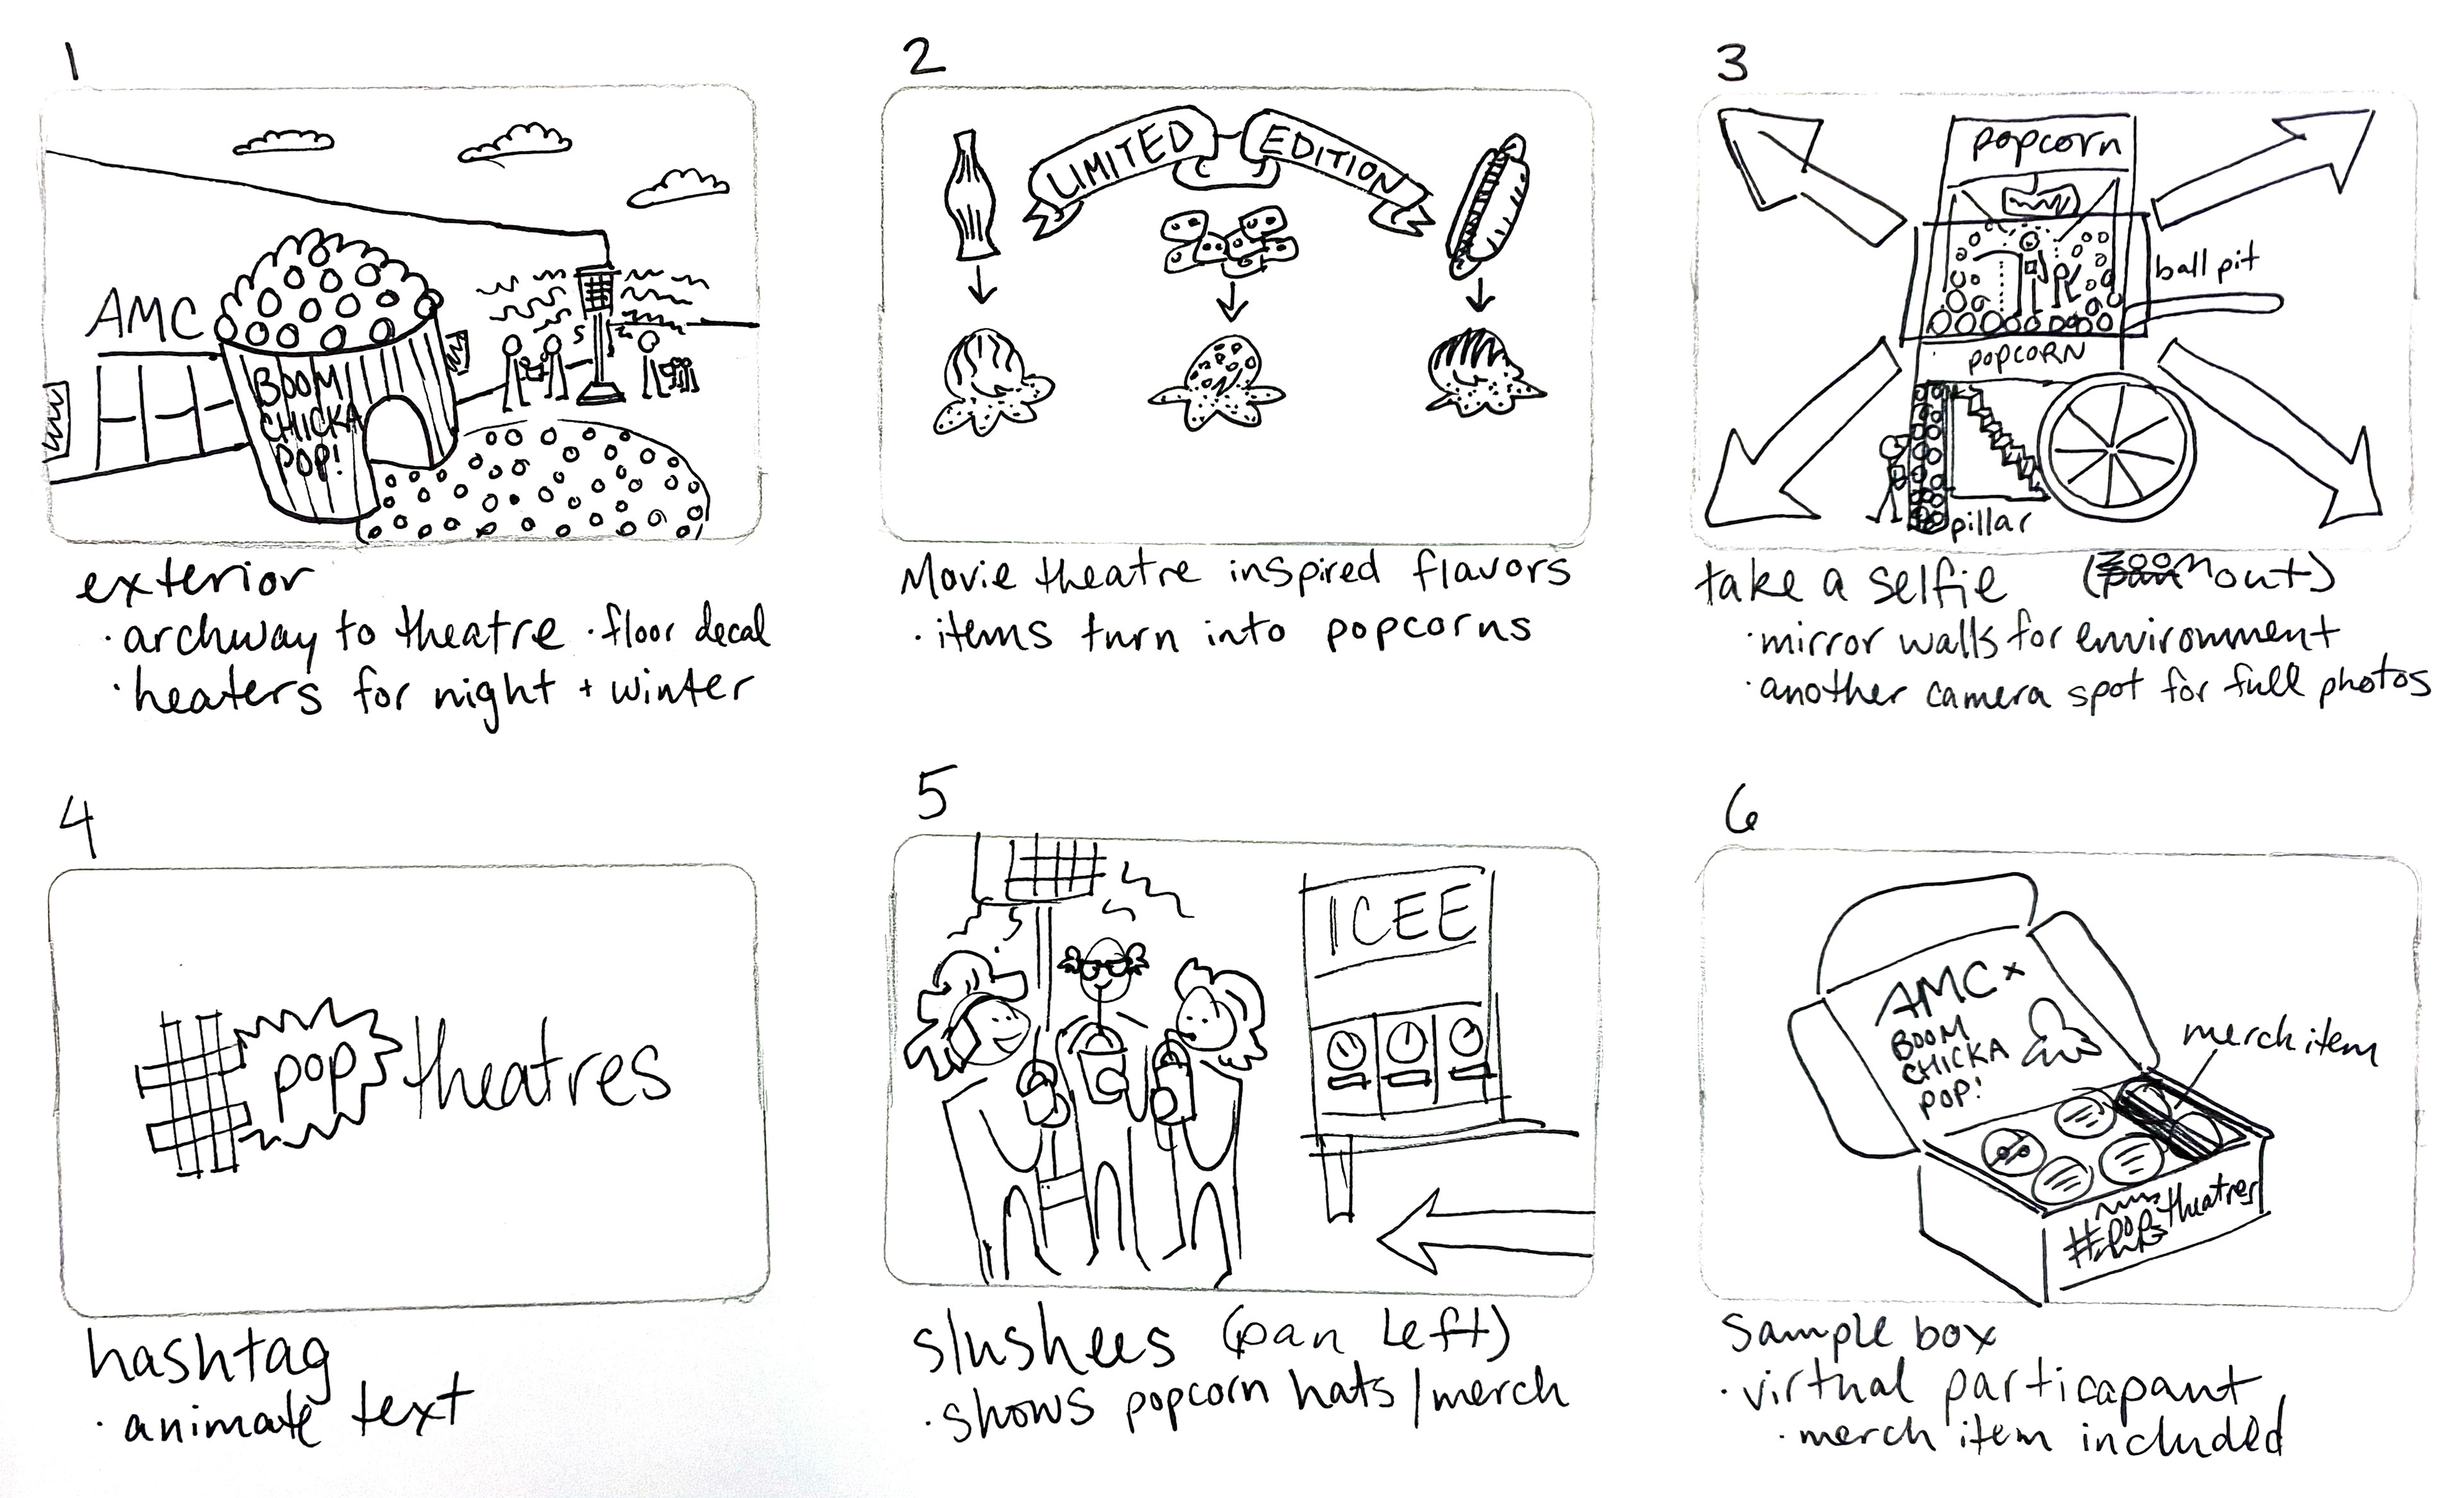 1
AMC
BOOM
CHICKA
POP!
exterior
· archway to theatre · floor decal
· heaters for night + winter
2
LIMITED EDITION
Movie theatre inspired flavors
· items turn into popcorns
3
popcorn
ball pit
POPCORN
pillar
take a selfie (zoom out)
· mirror walls for environment
· another camera spot for full photos
4
# pop theatres
hashtag
· animate text
5
ICEE
slushees (pan Left)
· shows popcorn hats / merch
6
AMC x
BOOM
CHICKA
POP!
merch item
#pop theatres
Sample box
· virtual particapant
· merch item included